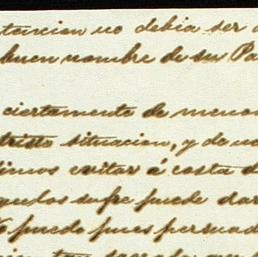 tencion no debia ser
buen nombre de su Pa
ciertamente de menos
triste situacion, y de no
timos evitar á costa d
sufre puede dar
puedo pues persuad